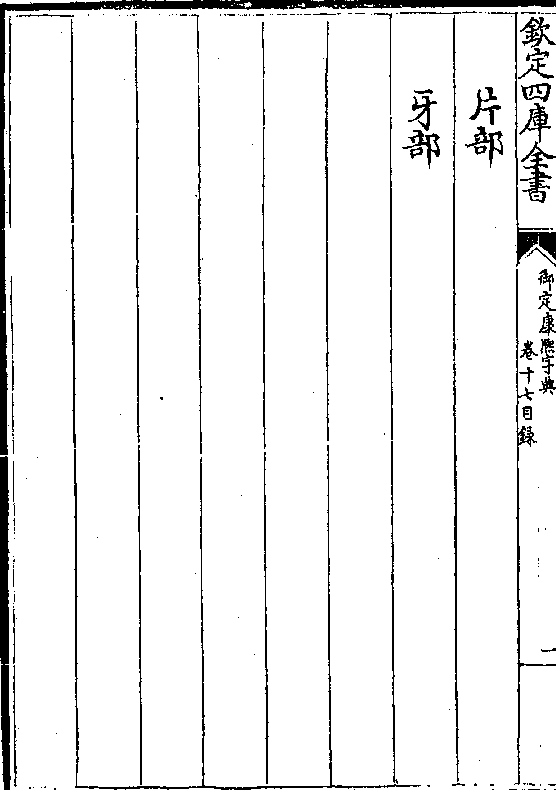 欽定四庫全書
御定康熙字典
卷十七目録
一
片部
牙部